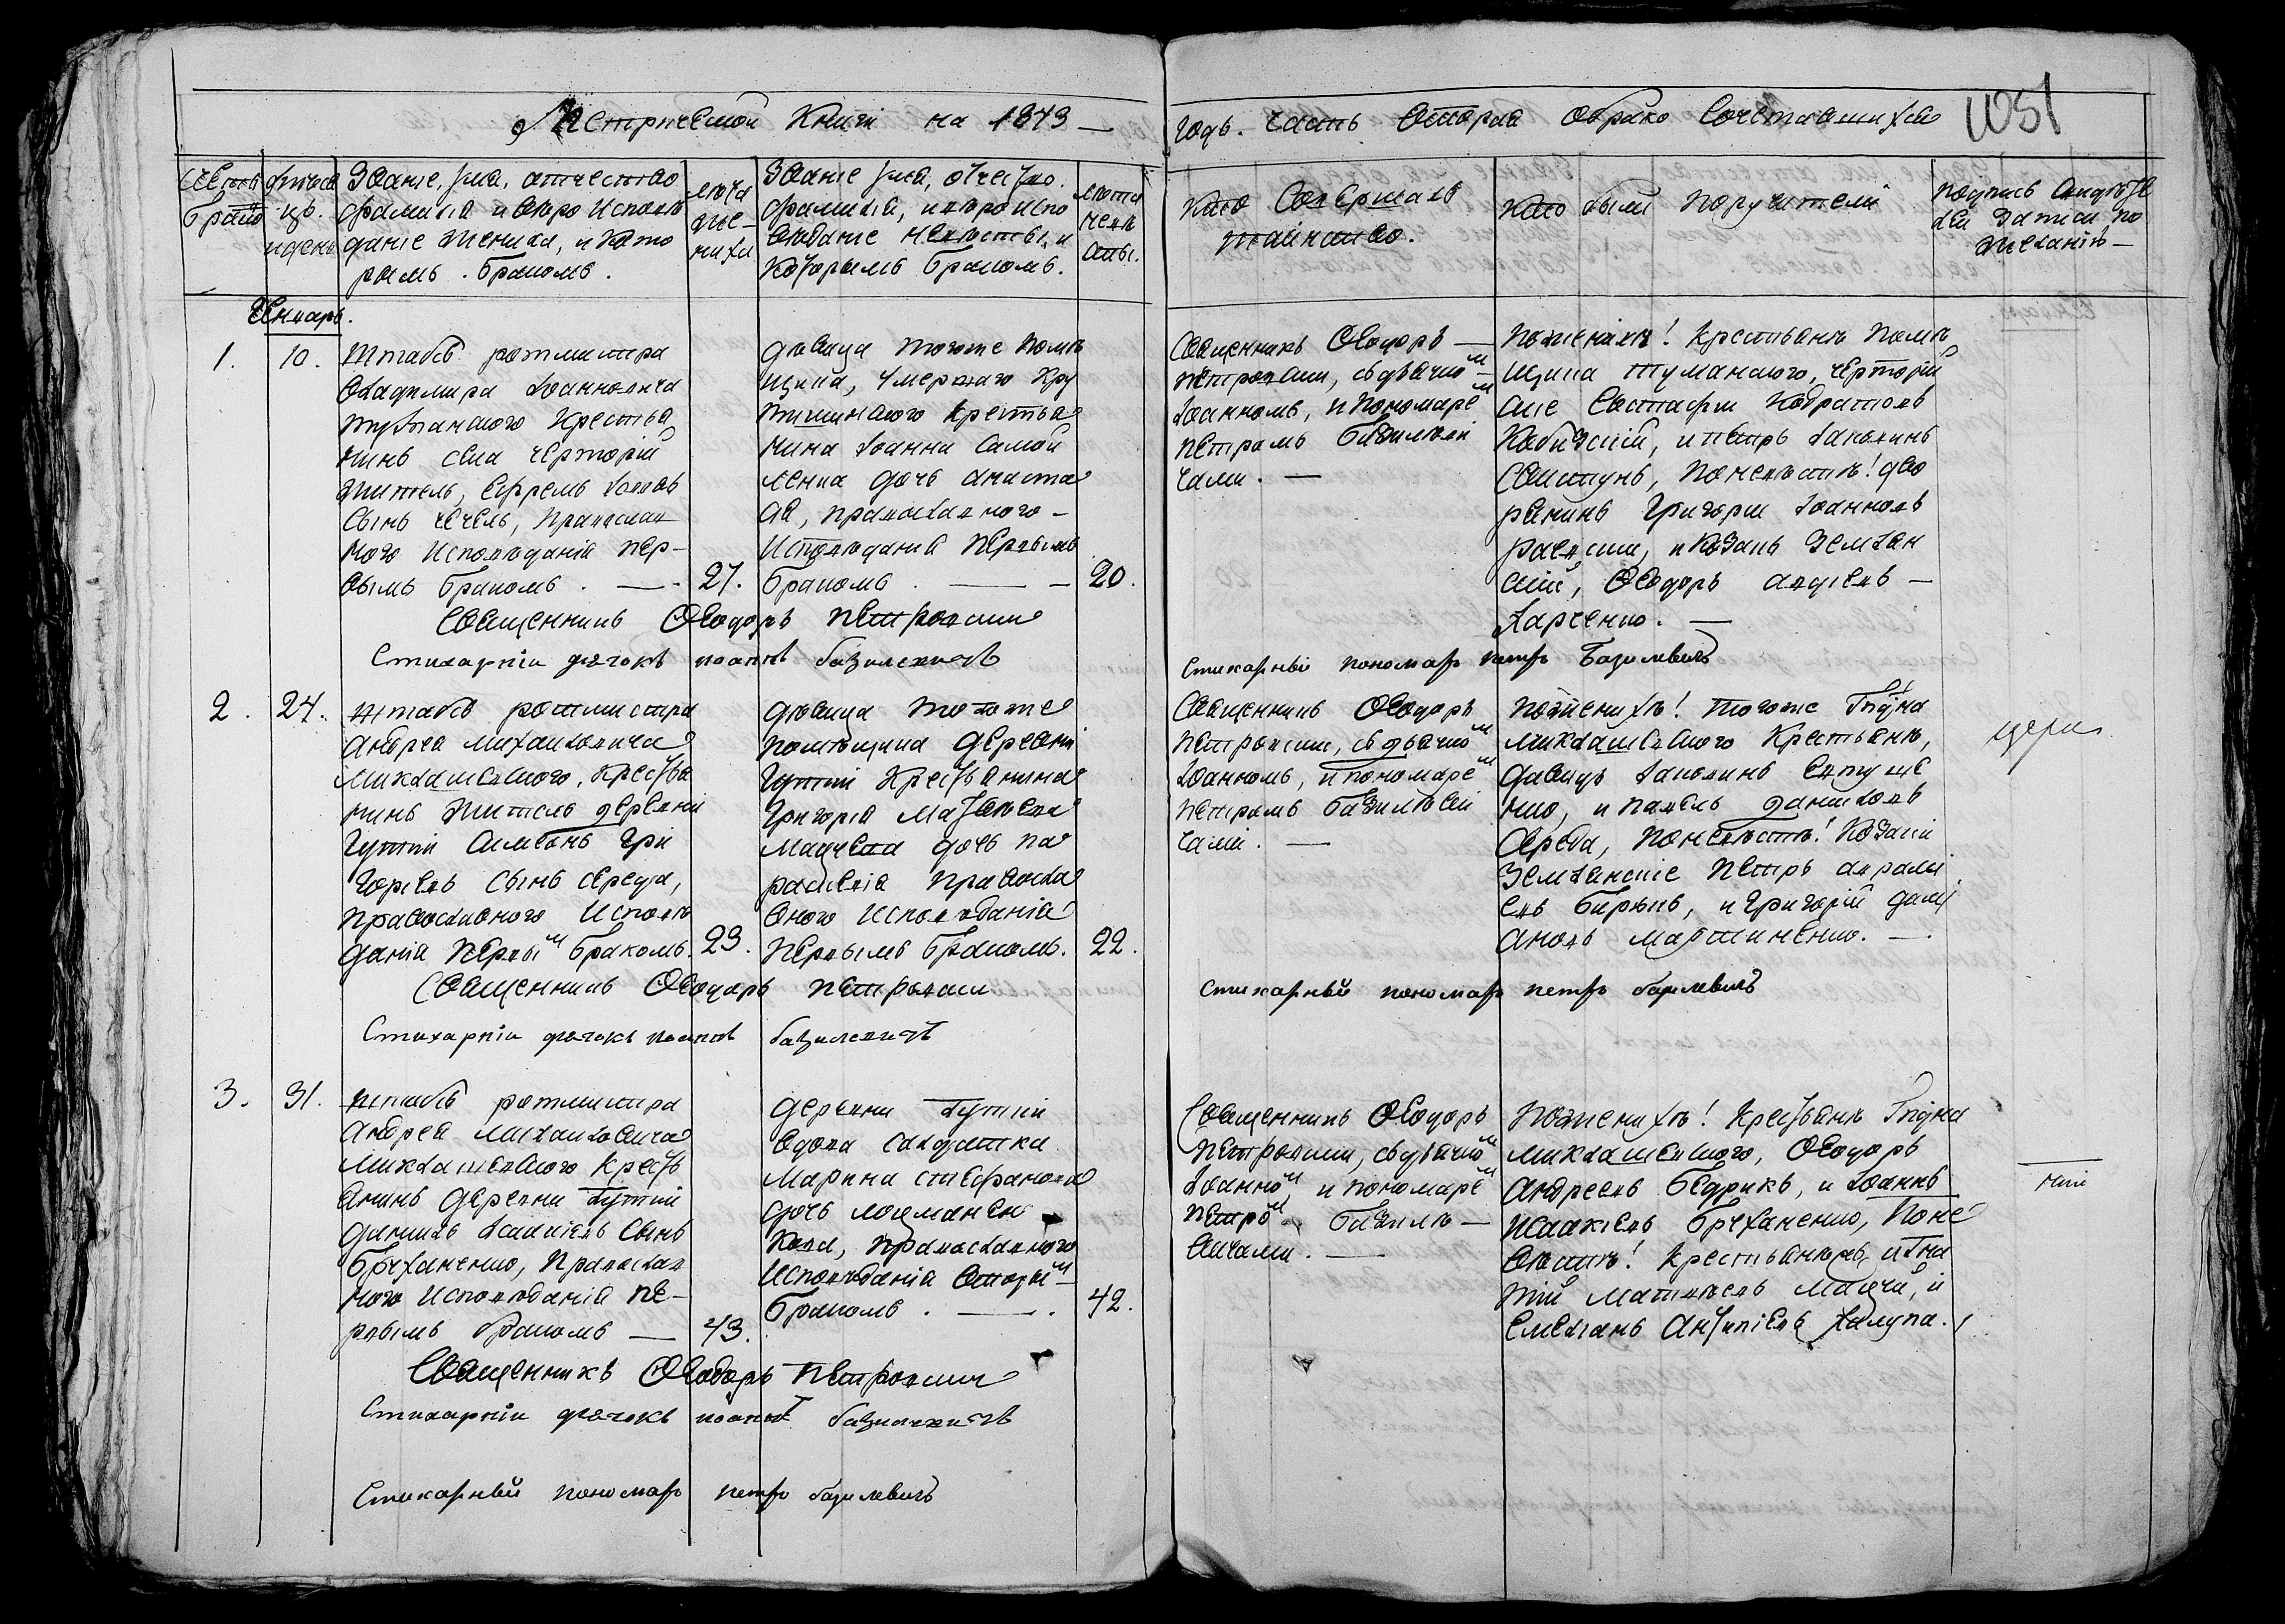 Метрической Книги на 1843 —
Годъ. Часть Вторая обрако Сочетавшихся
1051
Счетъ
браковъ
Мѣсяцъ
идень
Званіе, Имя, отчество
фамилія и вѣро исповѣ
даніе жениха, и кото
рымъ . бракомъ .
лѣта
же-
ниха
Званіе Имя, отчество.
фамилія, и вѣро испо
вѣданіе невѣсты, и
которымъ бракомъ.
лѣта
невѣ
сты.
Кто Совершалъ
таинство.
Кто были поручители
подпись свидѣте
лей записи по
желанію —
Генварь.
1.
10.
Штабъ ротмистра
Владимира Іоанновича
Туманского Крестья
нинъ села Чорторій
житель, Ефремъ
Сынъ Чечель, Православ
ного Исповѣданія пер-
вымъ бракомъ . —
27.
дѣвица тогоже помѣ
щика, умершаго
Крестья
нина Іоанна Самой
ленка дочь Анаста
сія, православного —
Исповѣданія Первымъ
бракомъ . —
20.
Священникъ Ѳеодоръ —
Петровскій, съ дьячко м
Іоанномъ, и Пономаре м
Петромъ Базилеви
чами . —
Поженихѣ! Крестьяне помѣ
щика Туманского, Чорторій
скіе Евстафій Кондратовъ
Кобизскій, и Петръ Іаковлевъ
Свистунъ, Поневѣстѣ! дво
ранинъ Григорій Іоанновъ
Раевскій, и Козакъ Землян
скій, Ѳеодоръ Авдіевъ —
Харченко . —
Священникъ Ѳеодоръ Петровскій
Стихарній дячокъ Іоаннъ Базилевичъ
Стихарный пономарь Петръ Базилевичъ
2 .
24.
Штабъ ротмистра
Андрея Михаиловича
Миклашевского, Крестья
нинъ житель деревни
Гутти Симеонъ Гри
горіевъ Сынъ Середа,
православного Исповѣ
данія первы м бракомъ.
23.
дѣвица тогоже
помѣщика деревни
Гутти Крестьянина
Григорія Матвѣева
дочь Па
раскевія Правосла
вного Исповѣданія
первымъ бракомъ.
22.
Священникъ Ѳеодоръ
Петровскій, съ дьячко м
Іоанномъ, и пономаре м
Петромъ Базилеви
чами . —
Поженихѣ! тогоже Гпдна
Миклашевского Крестьяне,
Давидъ Іаковлевъ Евтуше
нко, и Павелъ Даниловъ
Середа, Поневѣстѣ! Козаки
Землянскіе Петръ Аврамі
евъ Бирюкъ, и Григорій Дамі
ановъ Мартиненко. —
Священникъ Ѳеодоръ Петровскій
Стихарній дячокъ Іоаннъ Базилевичъ
Стихарный пономарь Петръ Базилевичъ
3 .
31.
Штабъ ротмистра
Андрея Михаиловича
Миклашевского Кресть
янинъ деревни Гутти
Даниилъ Ісаакіевъ Сынъ
Брехаченко, Православ
ного Исповѣданія пе-
рвымъ бракомъ —
43.
Деревни Гутти
вдова солдатка
Марина Стефанова
дочь
кова, православного
Исповѣданія вторы м
бракомъ . —
42.
Священникъ Ѳеодоръ
Петровскій, съ дьячко м
Іоанно м, и пономаре м
Петро м Базиле —
вичами . —
Поженихѣ! Крестьяне Гпдна
Миклашевского, Ѳеодоръ
Андреевъ Бедрикъ, и Іоаннъ
Исаакіевъ Брехаченко, Поне
вѣстѣ! Крестьяне, Игна
тій Матвѣевъ и
Емеліанъ Антипіевъ Халупа.
Священникъ Ѳеодоръ Петровскій
Стихарній дячокъ Іоаннъ Базилевичъ
Стихарный пономарь Петръ Базилевичъ